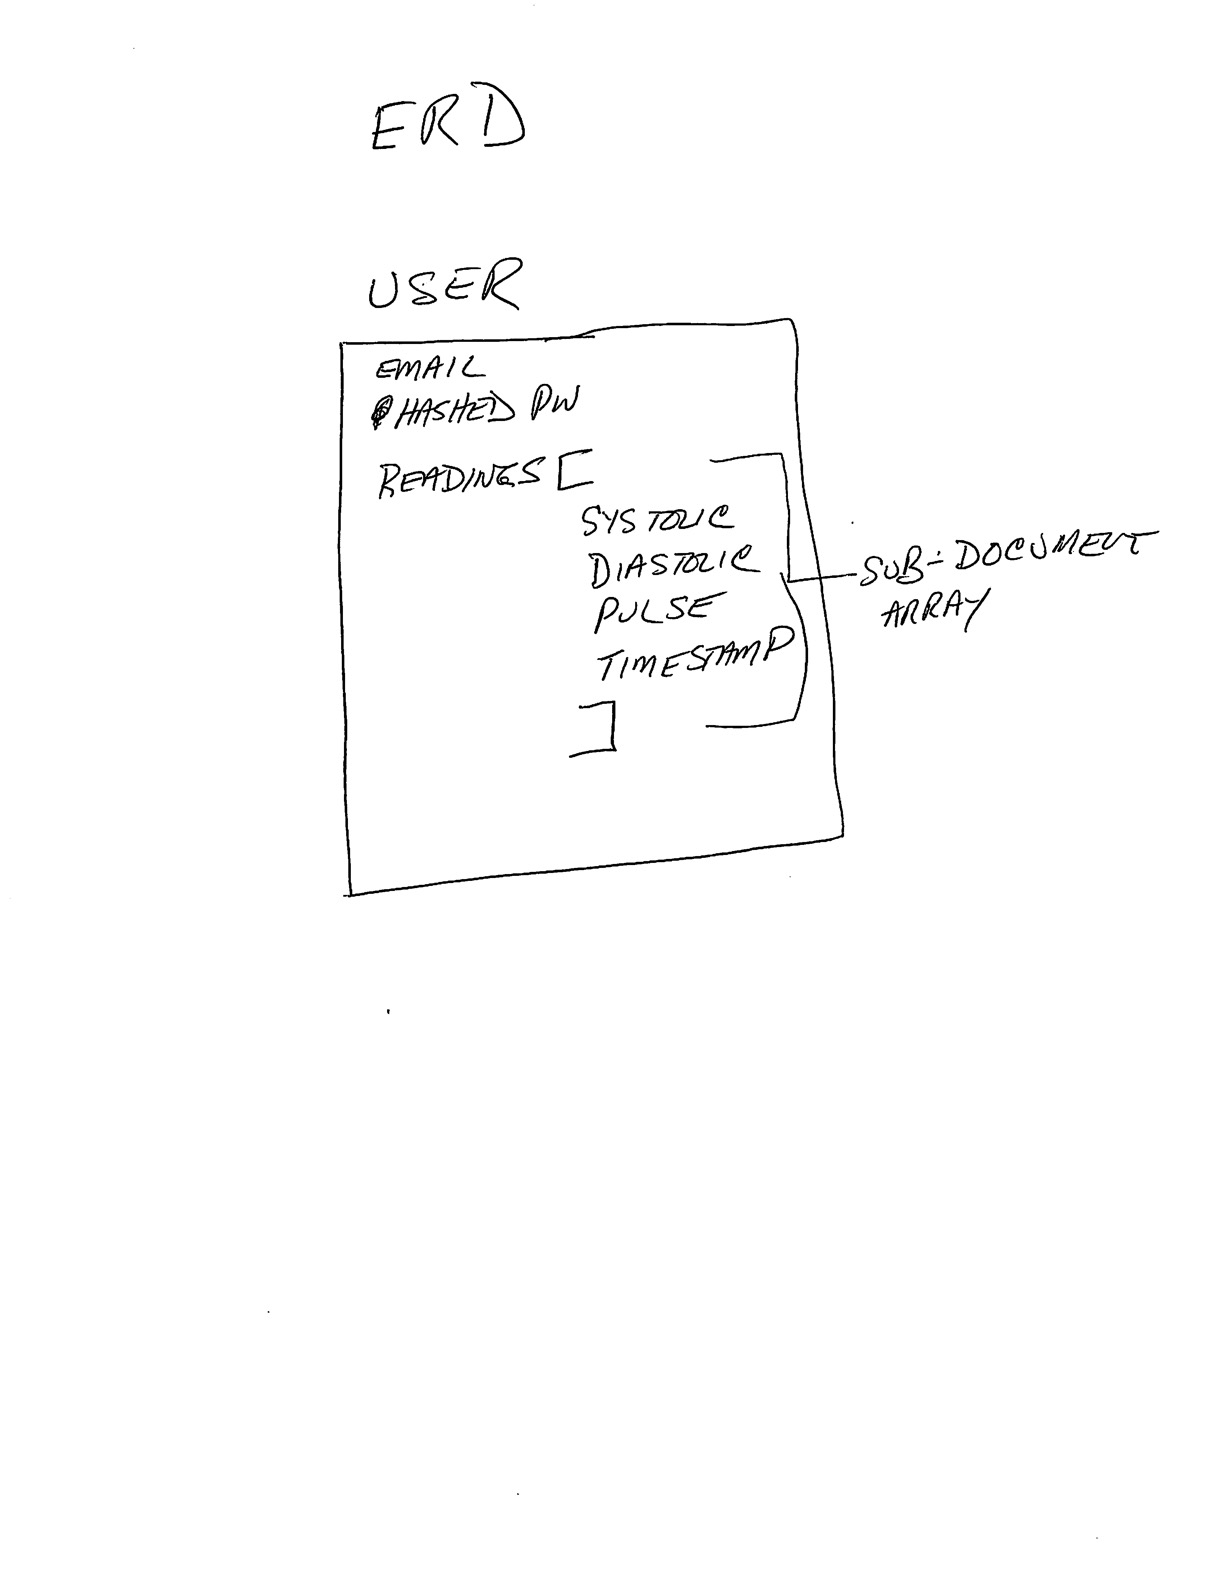 ERD
USER
EMAIL
HASHED PW
READINGS [
SYSTOLIC
DIASTOLIC
PULSE
TIMESTAMP
]
SUB-DOCUMENT
ARRAY